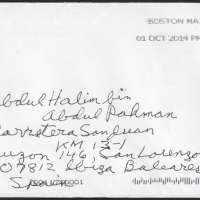 BOSTON MA
01 OCT 2014 PM
Abdul Halim bin
Abdul Rahman
Carretera San Juan
KM 13-1
Buzon 146, San Lorenzo
07812 Ibiza Baleares
Spain